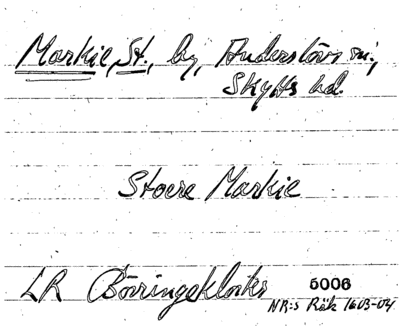 Markie, St., by, Anderslövs sn;
Skytts hd.
Stoere Markie
LR Börringekloster 5006
NR:s Räk 1603-04